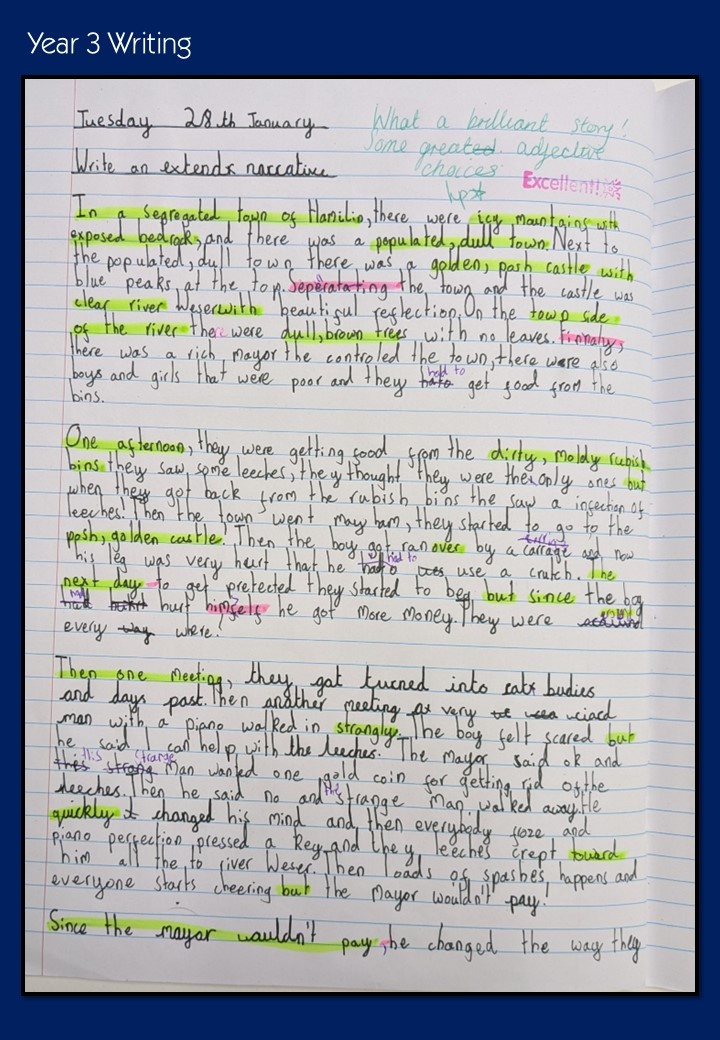 Year 3 Writing
Tuesday 28th January
What a brilliant story!
Some great adjective
choices
Excellent!
Write an extends narrative
In a segregated town of Hamilin, there were icy mountains with
exposed bedrock, and there was a populated, dull town. Next to
the populated, dull town there was a golden, posh castle with
blue peaks, at the top. Seperatating the town and the castle was
clear river Weser with beautiful reflection. On the town side
of the river there were dull, brown trees with no leaves. Finnaly,
there was a rich mayor the controled the town, there were also
boys and girls that were poor and they had to get food from the
bins.
One afternoon, they were getting food from the dirty, moldy rubish
bins they saw some leeches, they thought they were the only ones but
when they got back from the rubish bins the saw a infection of
leeches! Then the town went may ham, they started to go to the
posh, golden castle! Then the boy got ran over by a carrage and now
his leg was very hurt that he had to use a crutch. The
next day to get pretected they started to beg but since the boy
had hurt himself he got more money. They were around
every where!
Then one meeting, they got turned into eats budies
and days past. Then another meeting a very weiard
man with a piano walked in strangly. The boy felt scared but
he said I can help with the leeches. The Mayor said ok and
this strange Man wanted one gold coin for getting rid of the
leeches. Then he said no and the strange man walked away. He
quickly changed his mind and then everybody froze and
piano perfection pressed a key and they leeches crept toward
him all the to river Weser. Then loads of spashes happens and
everyone starts cheering but the Mayor wouldn't pay!
Since the mayor wouldn't pay, he changed the way they